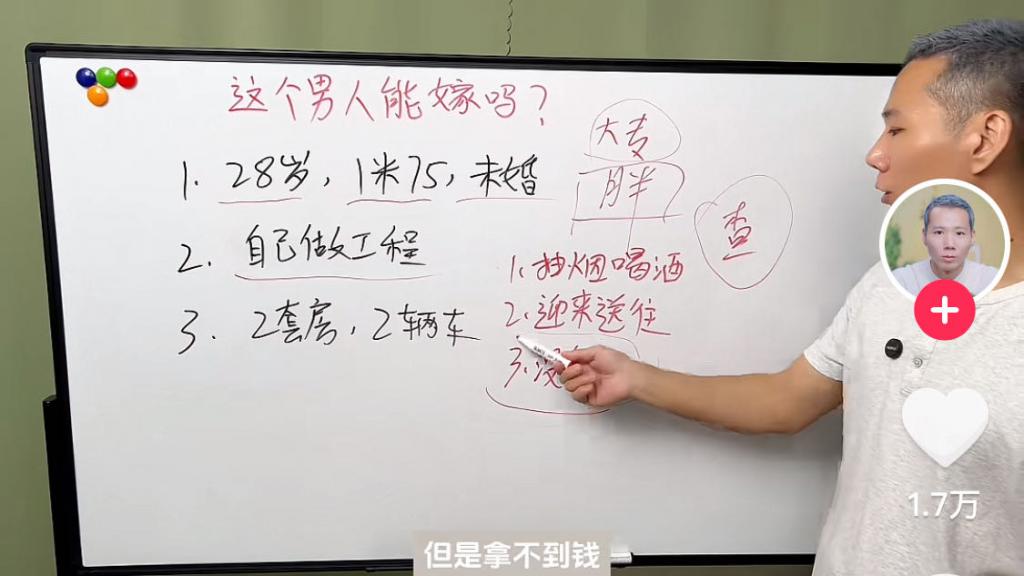 这个男人能嫁吗？
1. 28岁，1米75，未婚
2. 自己做工程
3. 2套房，2辆车
大专
胖
查
1.抽烟喝酒
2.迎来送往
3.没
1.7万
但是拿不到钱